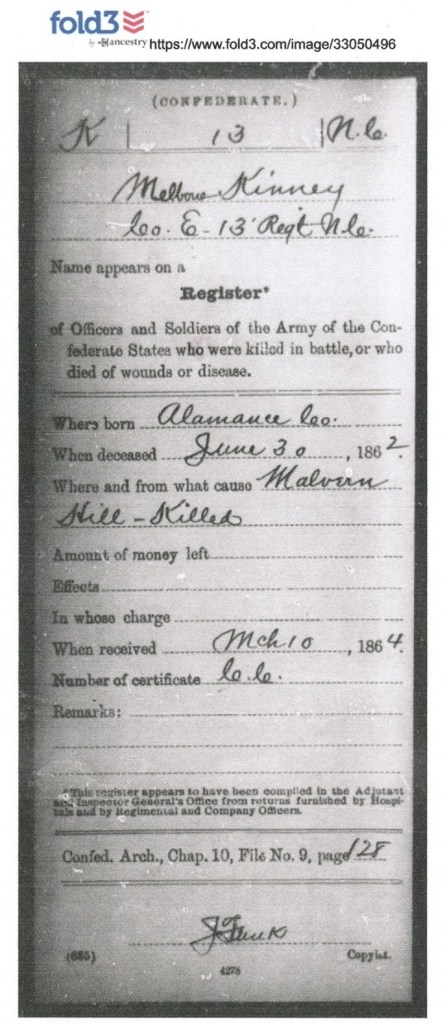 fold3
by Ancestry https://www.fold3.com/image/33050496
(CONFEDERATE.)
K | 13 | N.C.
Melbone Kinney
Co. E - 13' Regt N.C.
Name appears on a
Register*
of Officers and Soldiers of the Army of the Con-
federate States who were killed in battle, or who
died of wounds or disease.
Where born Alamance Co.
When deceased June 30, 1862.
Where and from what cause Malvern
Hill - Killed
Amount of money left
Effects
In whose charge
When received Mch 10, 1864.
Number of certificate C.C.
Remarks:
*This register appears to have been compiled in the Adjutant
and Inspector General's Office from returns furnished by Hospi-
tals and by Regimental and Company Officers.
Confed. Arch., Chap. 10, File No. 9, page 128
J Funk
(685) Copyist.
4278